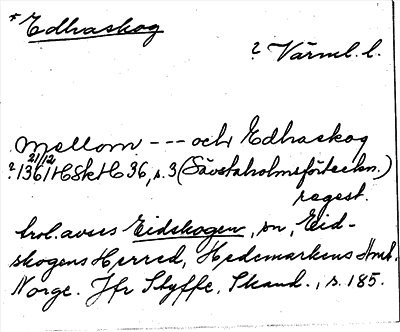 *Edhaskog
? Värml. l.
Mellom --- och Edhaskog
21/12
? 1361 HSkH 36, s. 3 (Sävstaholmsförteckn.)
regest.
trol. avses Eidskogen, sn, Eid-
skogens Herred, Hedemarkens Amt,
Norge. Jfr Styffe, Skand., s. 185.